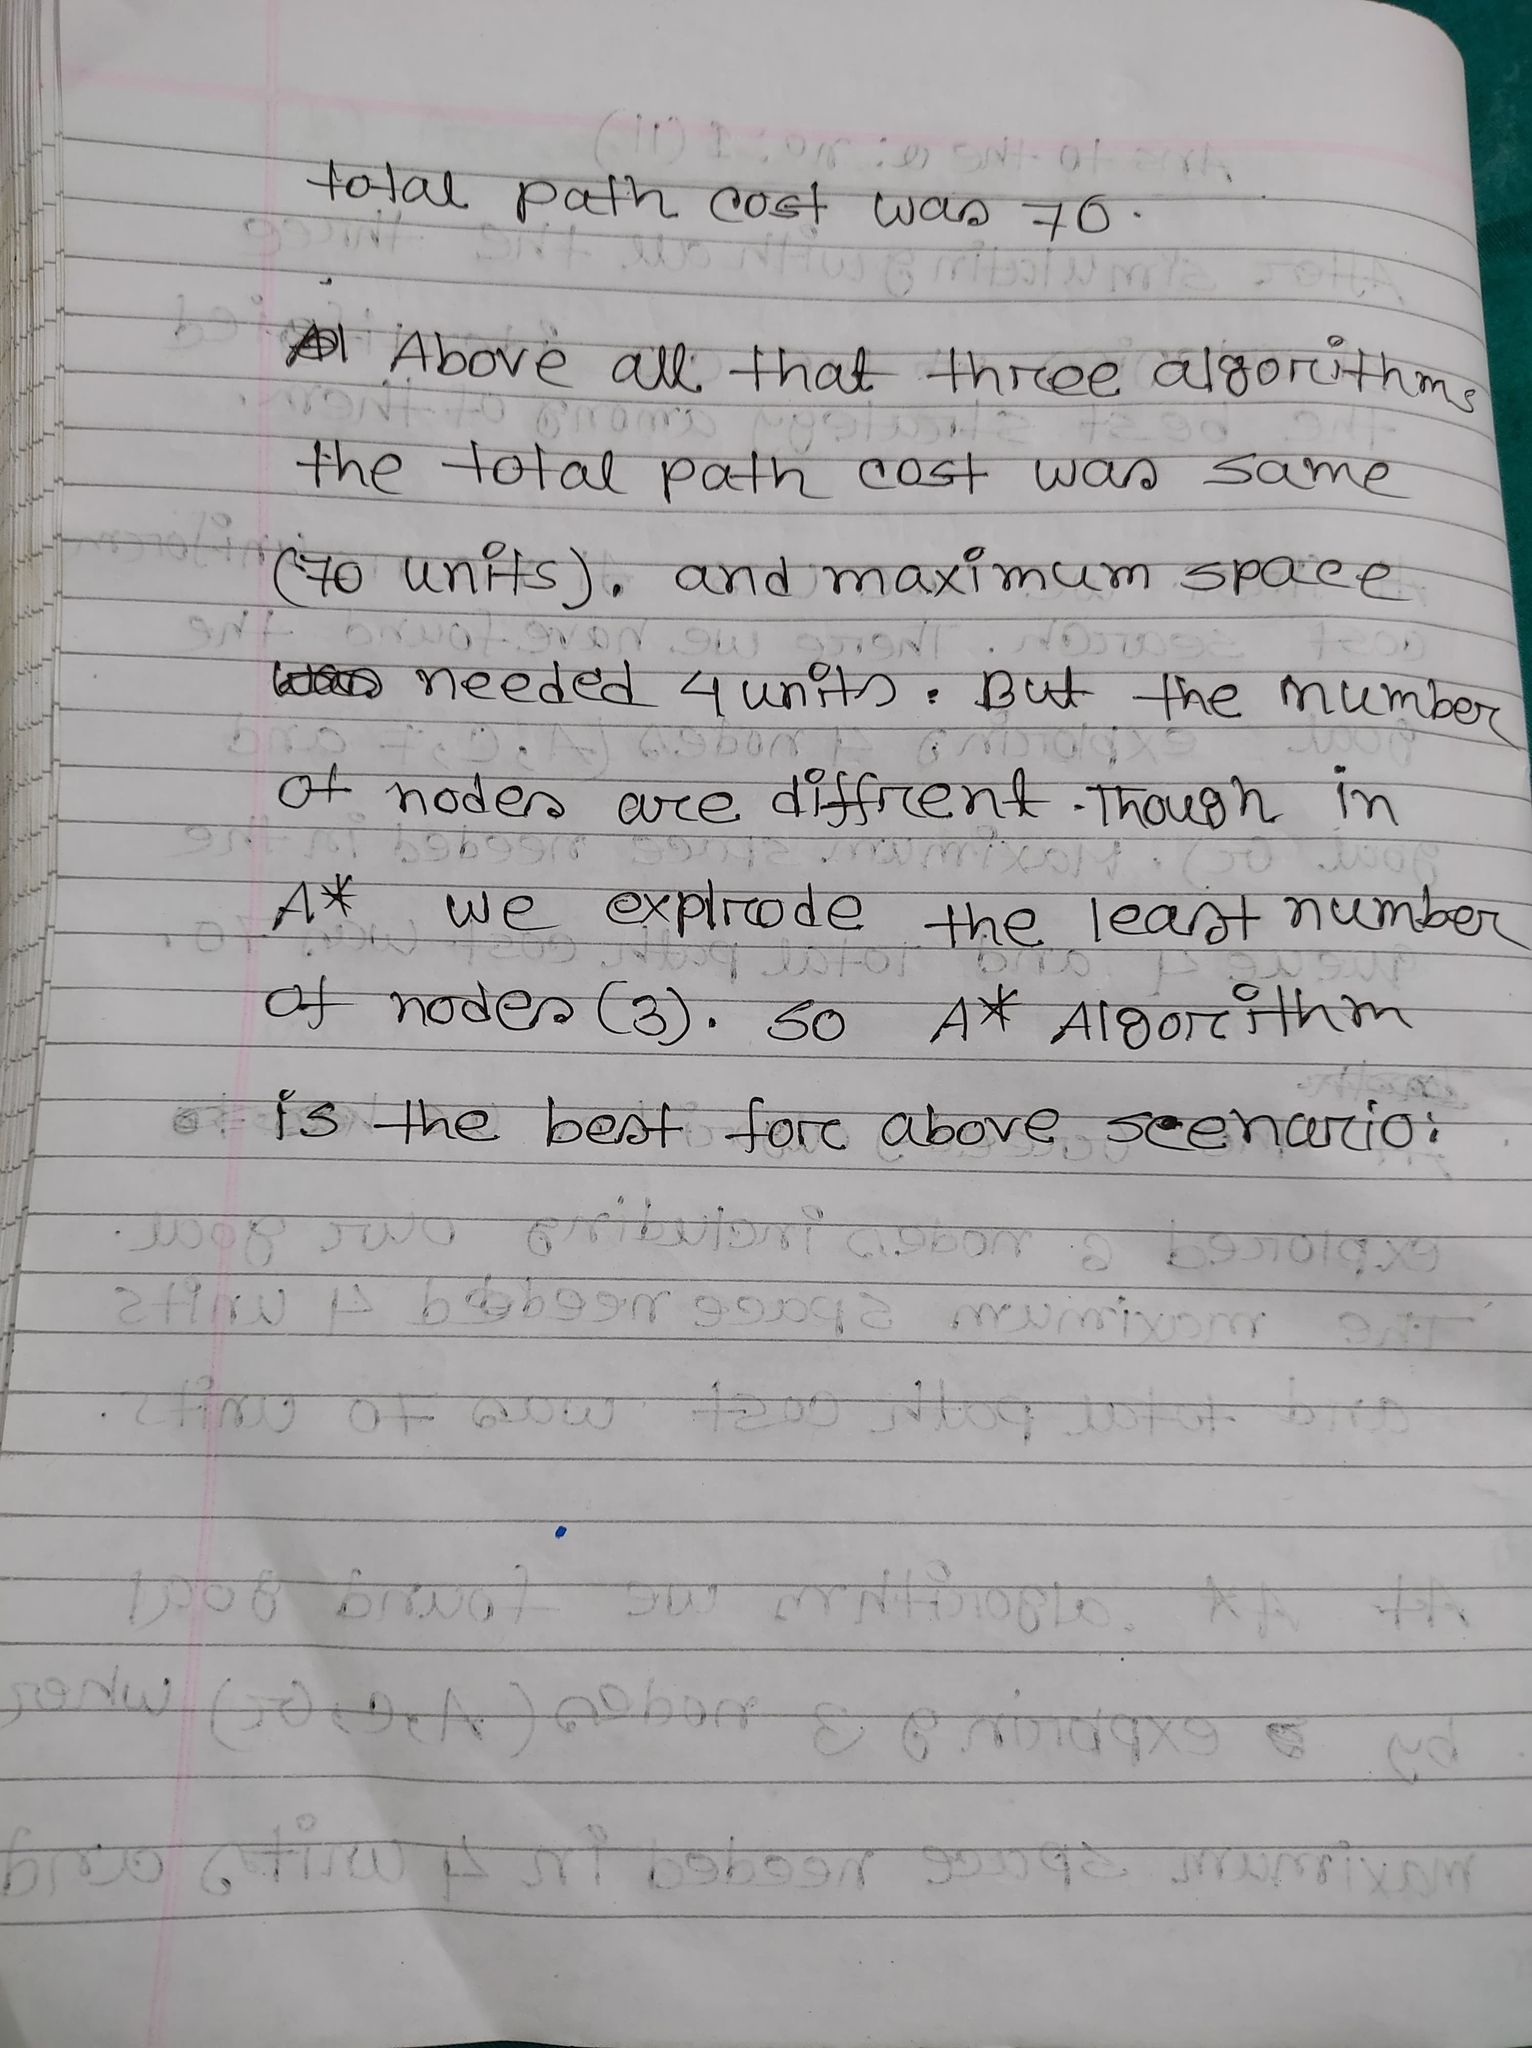 total path cost was 70.
Above all that three algorithms
the total path cost was same
(70 units). and maximum space
needed 4 units. But the number
of nodes are diffrent. Though in
A* we explrode the least number
of nodes (3). so A* Algorithm
is the best for above scenario: